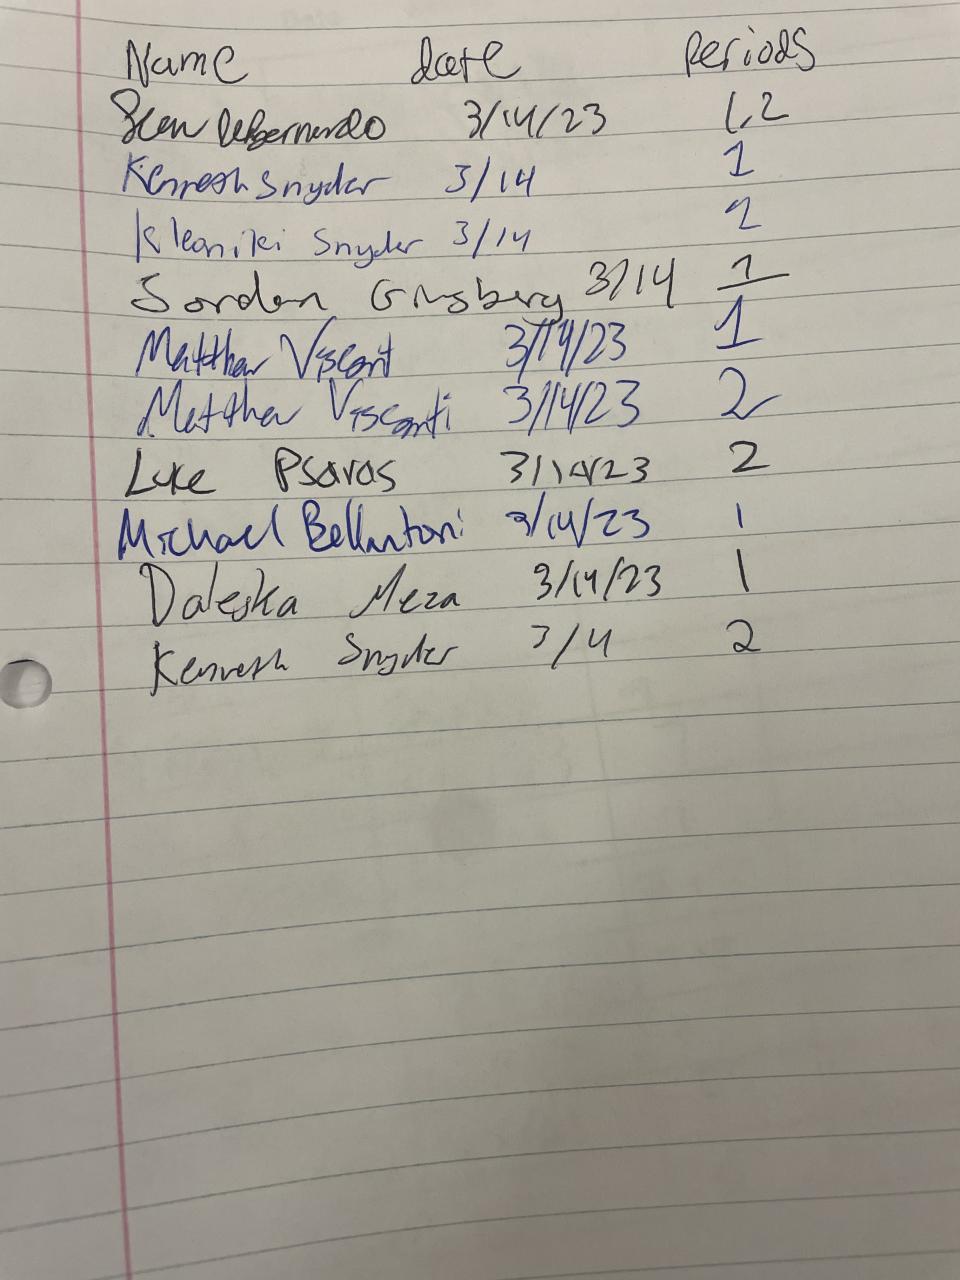 Name date Periods
Sean DeBernardo 3/14/23 1,2
Kenneth Snyder 3/14 1
Kleoniki Snyder 3/14 2
Jordan Ginsberg 3/14 1
Matthew Viscont 3/14/23 1
Matthew Visconti 3/14/23 2
Luke Psaras 3/14/23 2
Michael Bellantoni 3/14/23 1
Daleska Meza 3/14/23 1
Kenneth Snyder 3/4 2